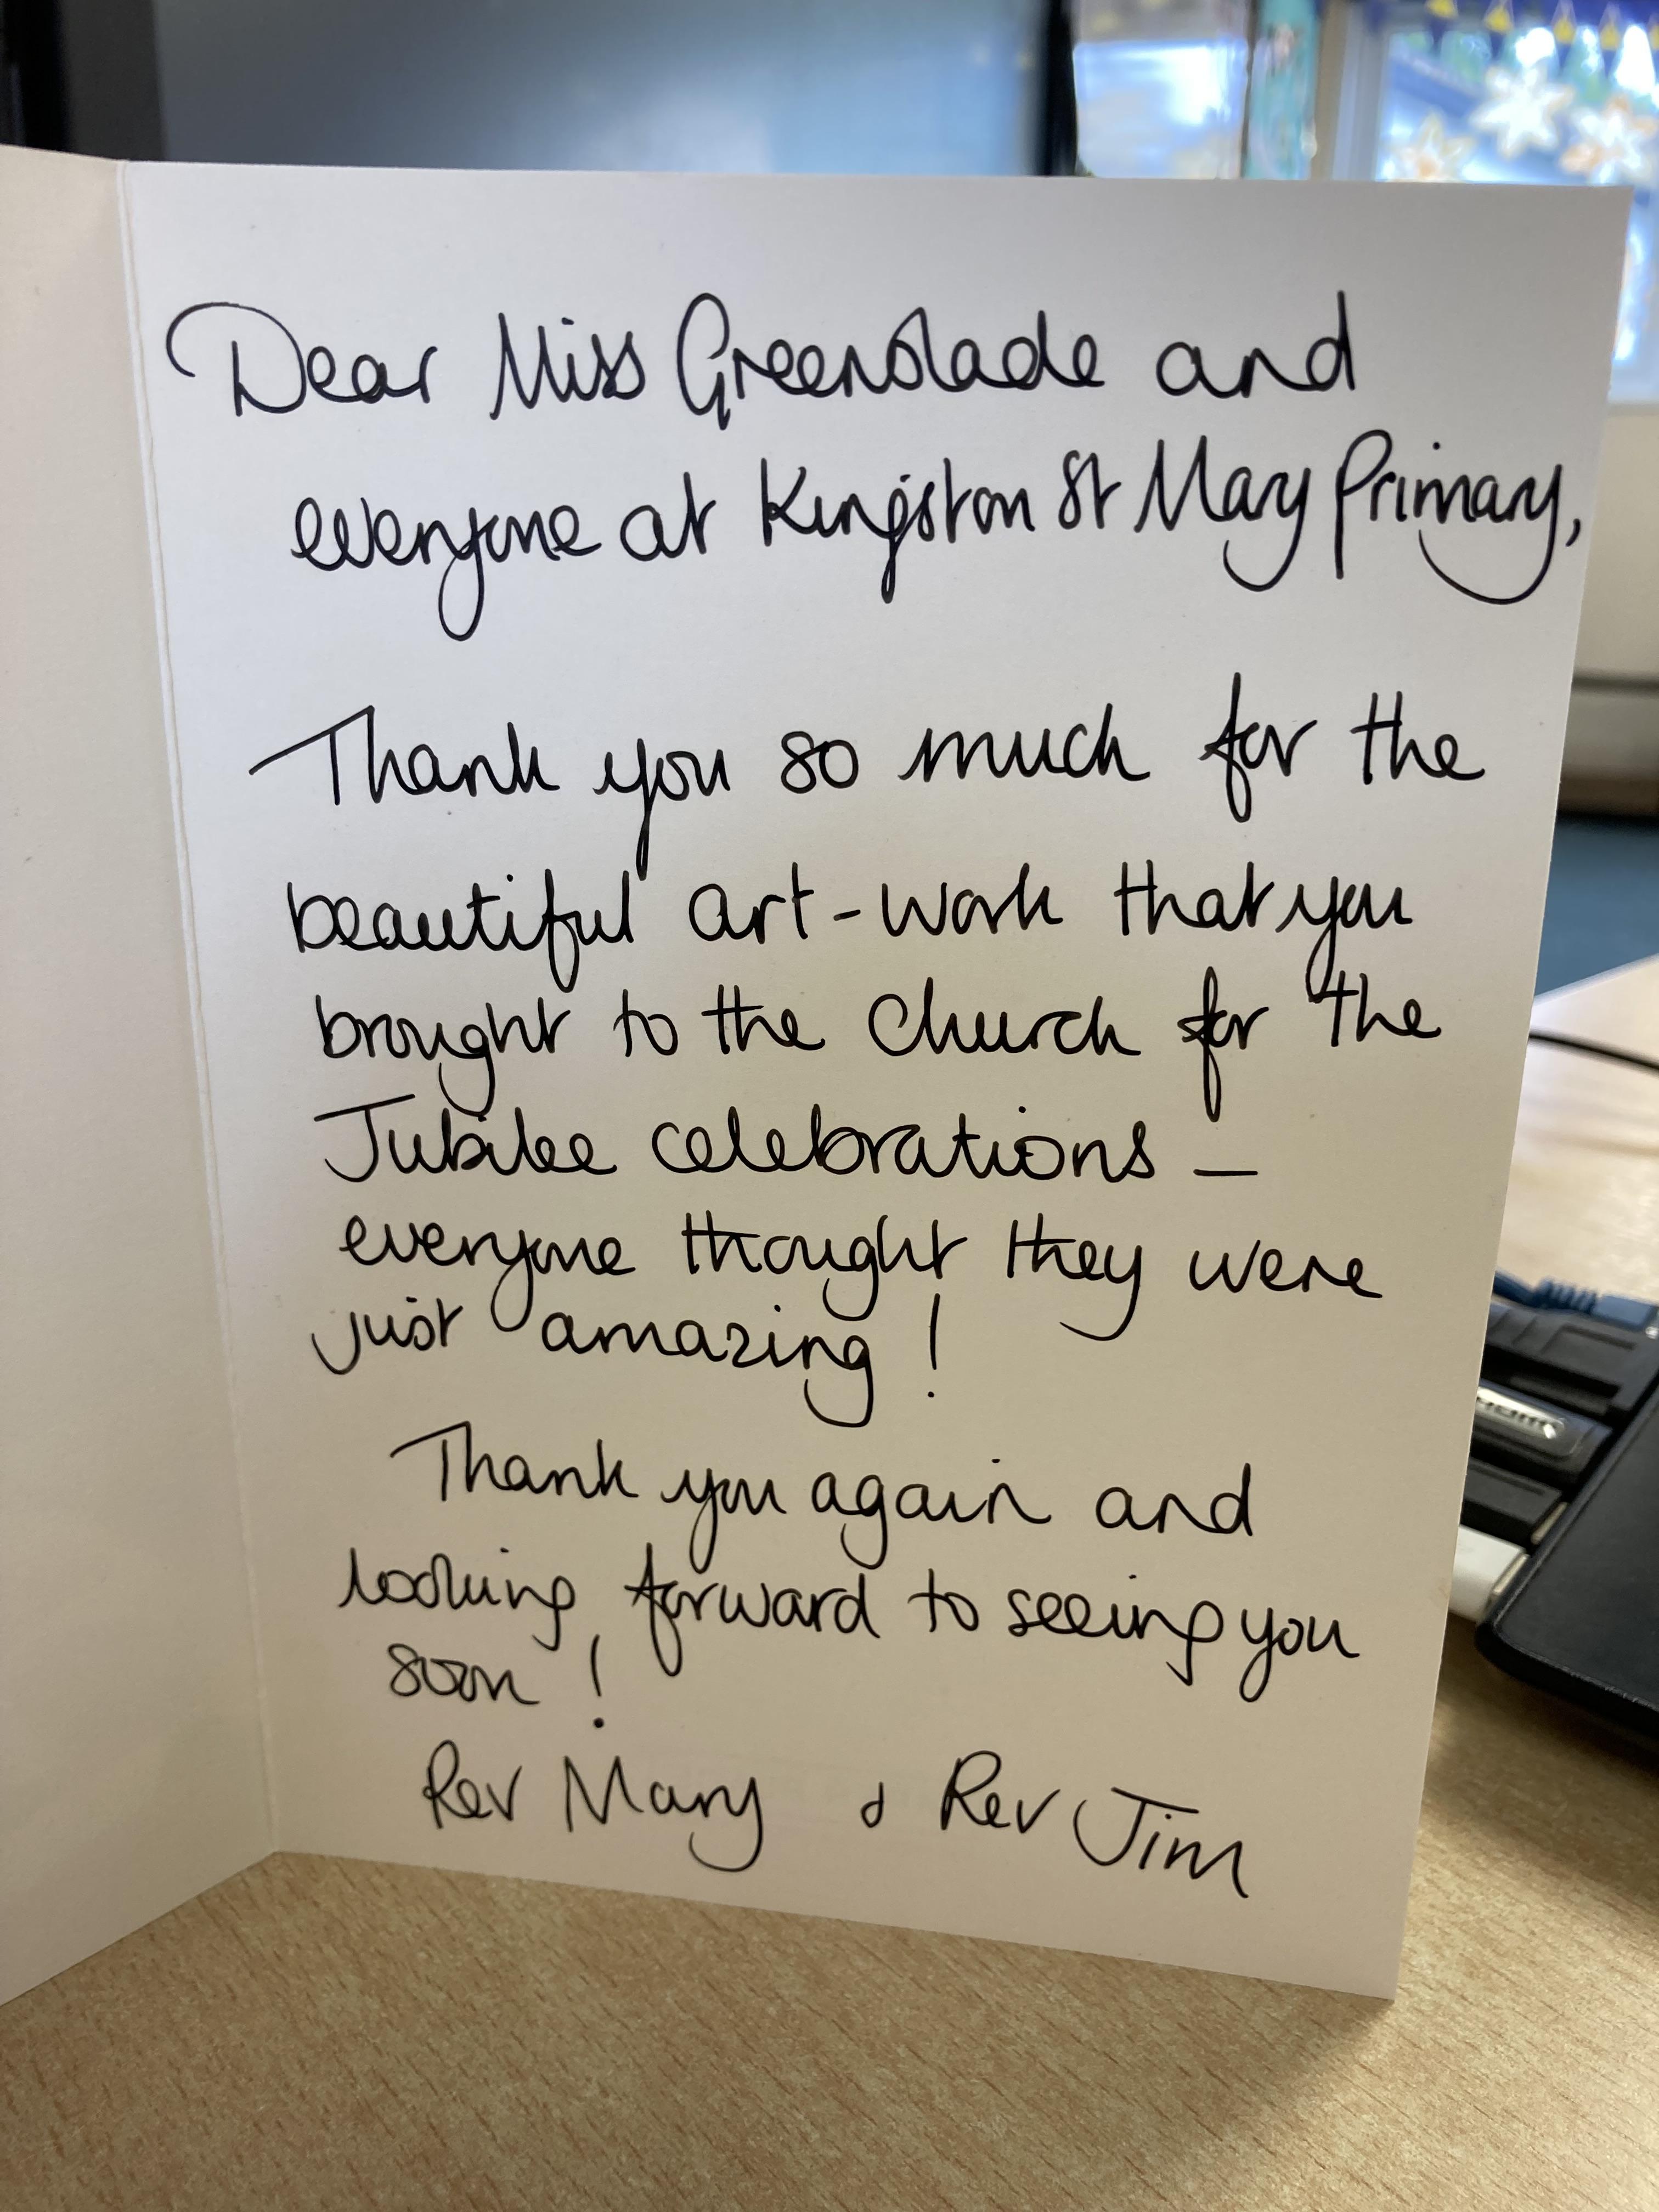 Dear Miss Greenslade and
everyone at Kingston St Mary Primary,
Thank you so much for the
beautiful art-work that you
brought to the Church for the
Jubilee celebrations –
everyone thought they were
just amazing!
Thank you again and
looking forward to seeing you
soon!
Rev Mary & Rev Jim